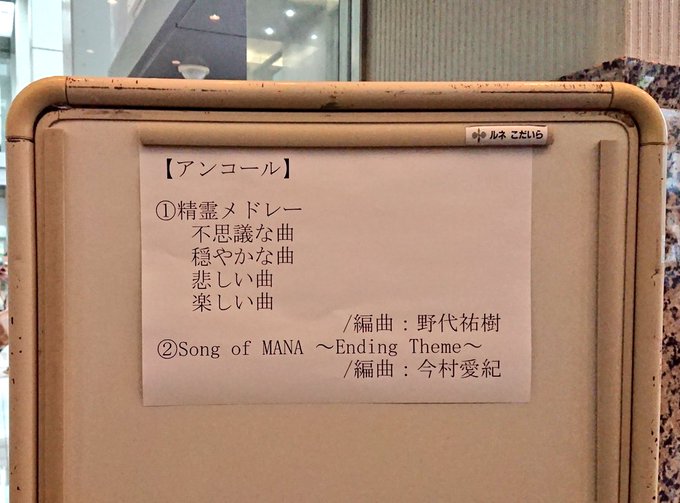 ルネ こだいら
【アンコール】
①精霊メドレー
不思議な曲
穏やかな曲
悲しい曲
楽しい曲
/編曲：野代祐樹
②Song of MANA ～Ending Theme～
/編曲：今村愛紀